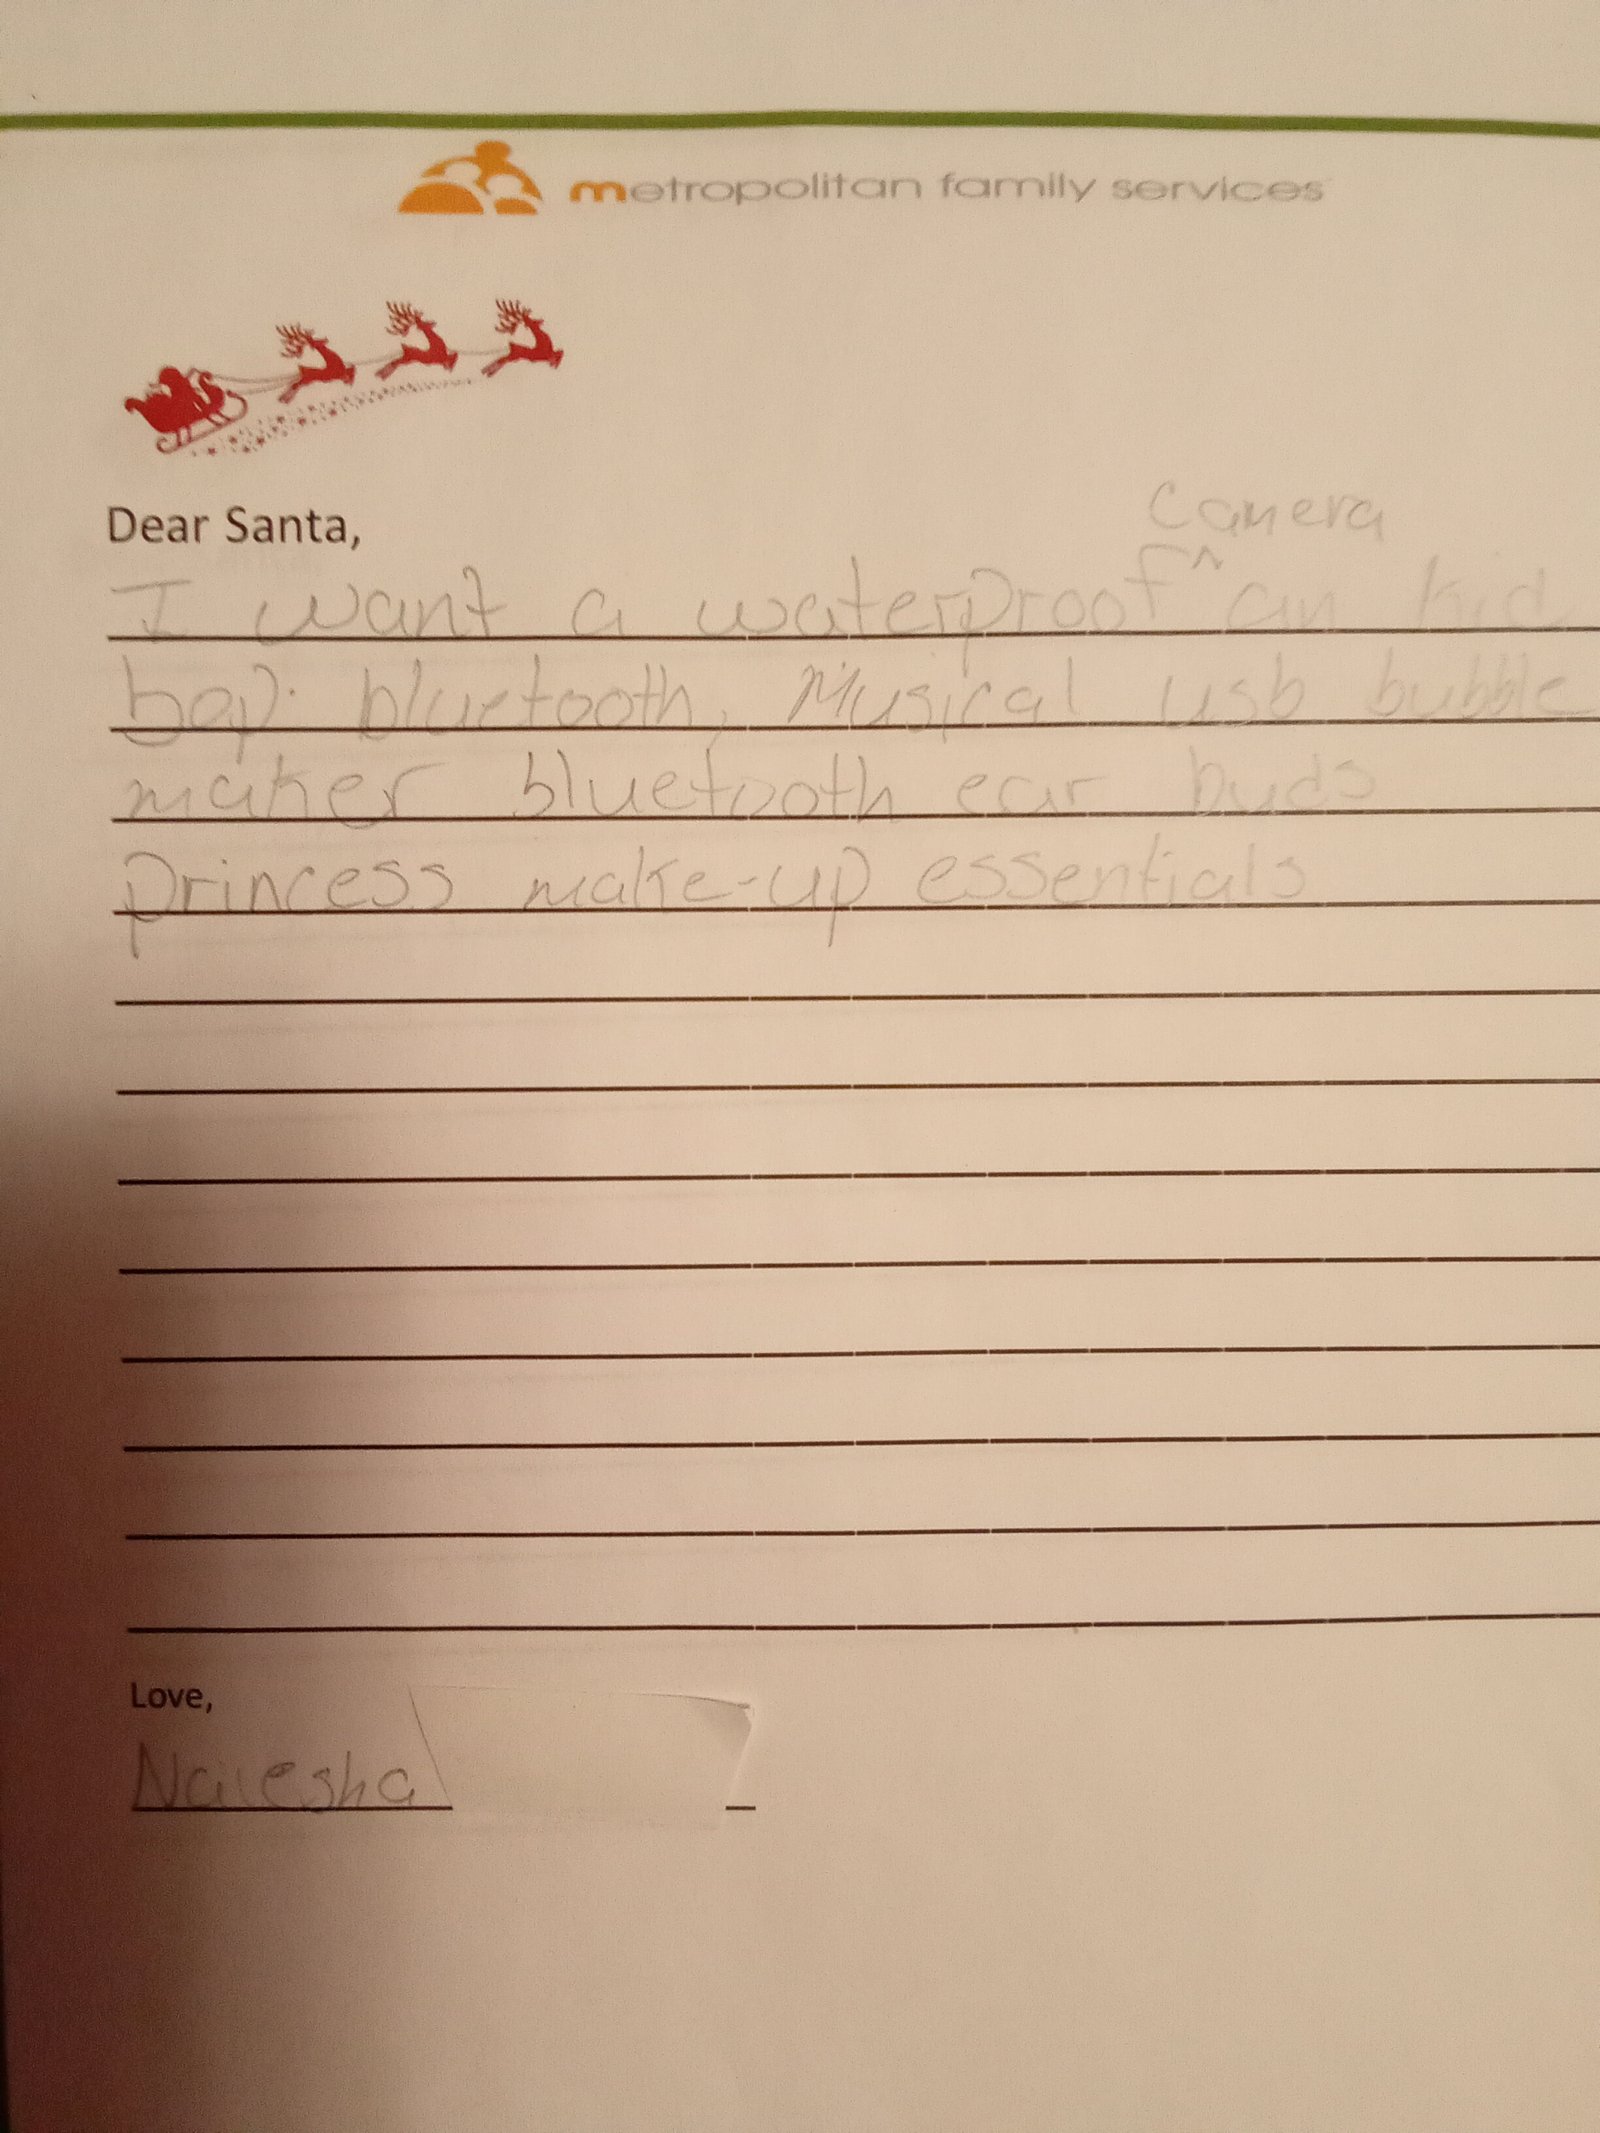 metropolitan family services
Dear Santa,
camera
I want a waterproof ^ an kid
bop bluetooth, Musical usb bubble
maker bluetooth ear buds
princess make-up essentials
Love,
Nailesha